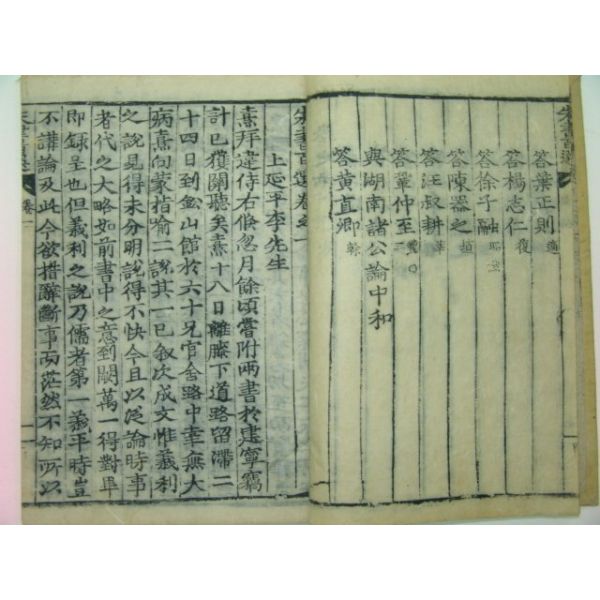 答葉正則 適
答楊志仁 復
答徐子融
答陳器之 埴
答汪叔耕 莘
答鞏仲至 豐
與湖南諸公論中和
答黄直卿 榦
朱書百選卷之一
上延平李先生
熹拜違侍右倏忽月餘頃嘗附兩書於建寧竊
計已獲關聽矣熹十八日離膝下道路留滯二
十四日到鈆山館於六十兄官舍路中幸無大
病熹向蒙指喻二說其一已叙次成文惟義利
之說見得未分明說得不快今且以泛論時事
者代之大略如前書中之意到闕萬一得對畢
即録呈也但義利之說乃儒者第一義平時豈
不講論及此今欲措辭斷事而茫然不知所以
朱書百選 卷一